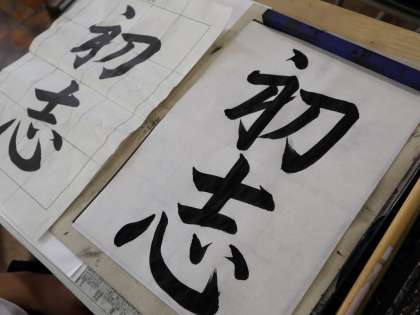 初
志
初
志